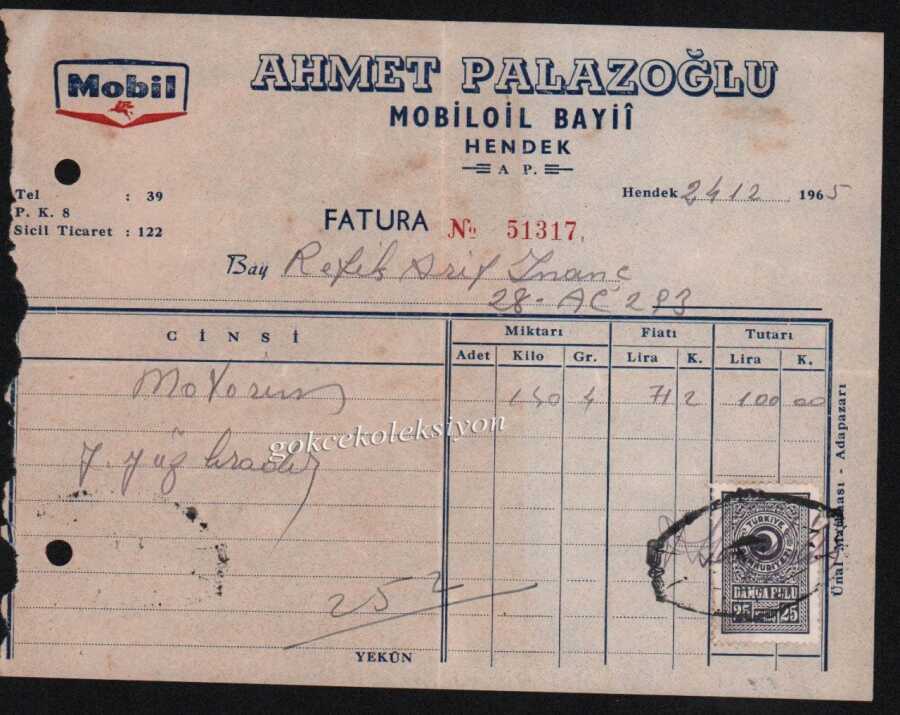 Mobil
AHMET PALAZOĞLU
MOBİLOİL BAYİÎ
HENDEK
A P.
Tel : 39
P. K. 8
Sicil Ticaret : 122
Hendek 24 12 1965
FATURA № 51317
Bay Refik Arif İnanç
28 - AC 293
CİNSİ Miktarı Fiatı Tutarı
Adet Kilo Gr. Lira K. Lira K.
Motorin 140 4 71 2 100 00
gokcekoleksiyon
Y. yüz liradır
TÜRKİYE
CUMHURİYETİ
DAMGA PULU
25 25
252
YEKÛN
Ünal Matbaası - Adapazarı